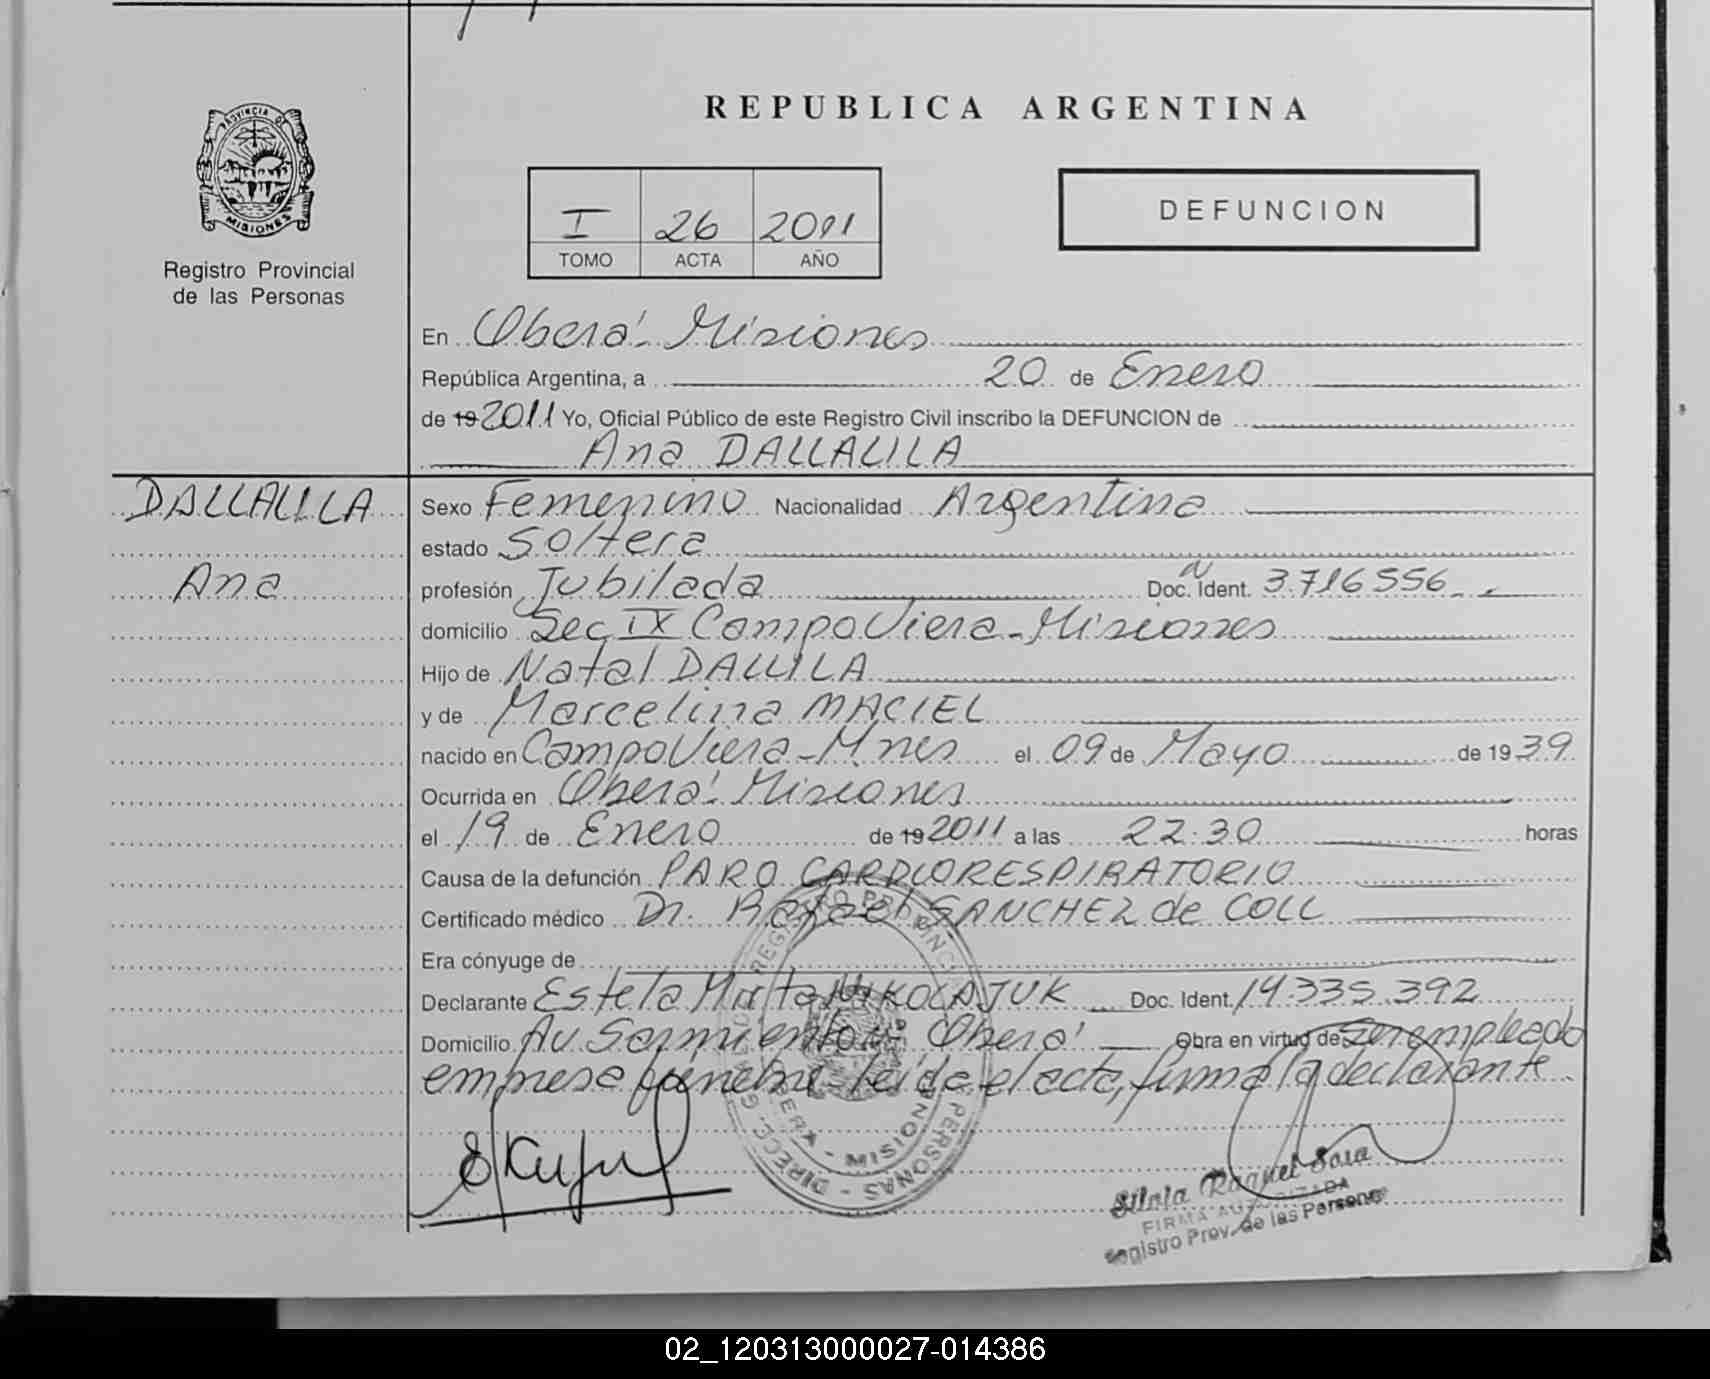 REPUBLICA ARGENTINA
PROVINCIA DE
MISIONES
Registro Provincial
de las Personas
I 26 2011
TOMO ACTA AÑO
DEFUNCION
En Oberá - Misiones
República Argentina, a 20 de Enero
de 19 2011 Yo, Oficial Público de este Registro Civil inscribo la DEFUNCION de
Ana DALLALILA
DALLALILA
Ana
Sexo Femenino Nacionalidad Argentina
estado Soltera
profesión Jubilada Doc. Ident. 3.716556
domicilio Sec IX Campo Viera - Misiones
Hijo de Natal DALLILA
y de Marcelina MACIEL
nacido en Campo Viera - Mnes el 09 de Mayo de 1939
Ocurrida en Oberá - Misiones
el 19 de Enero de 19 2011 a las 22:30 horas
Causa de la defunción PARO CARDIORESPIRATORIO
Certificado médico Dr. Rafael SANCHEZ de COLL
Era cónyuge de
Declarante Estela Mirta MIKOLAJUK Doc. Ident. 14 335 392
Domicilio Av Sarmiento Oberá Obra en virtud de Ser empleado
empresa funebre Leida el acta, firma la declarante
OBERA - MISIONES
Silvia Raquel Sosa
FIRMA AUTORIZADA
Registro Prov. de las Personas
02_120313000027-014386